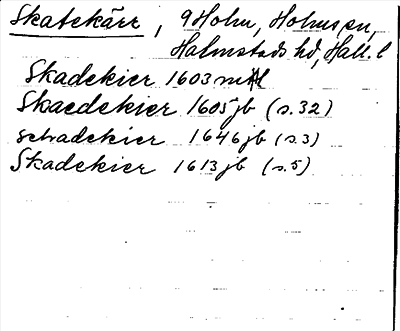 Skatekärr, Holm, Holms sn,
Halmstads hd, Hall. l
Skadekier 1603
Skaedekier 1605 jb (s. 32)
schadekier 1646 jb (s. 3)
Skadekier 1613 jb (s. 5)